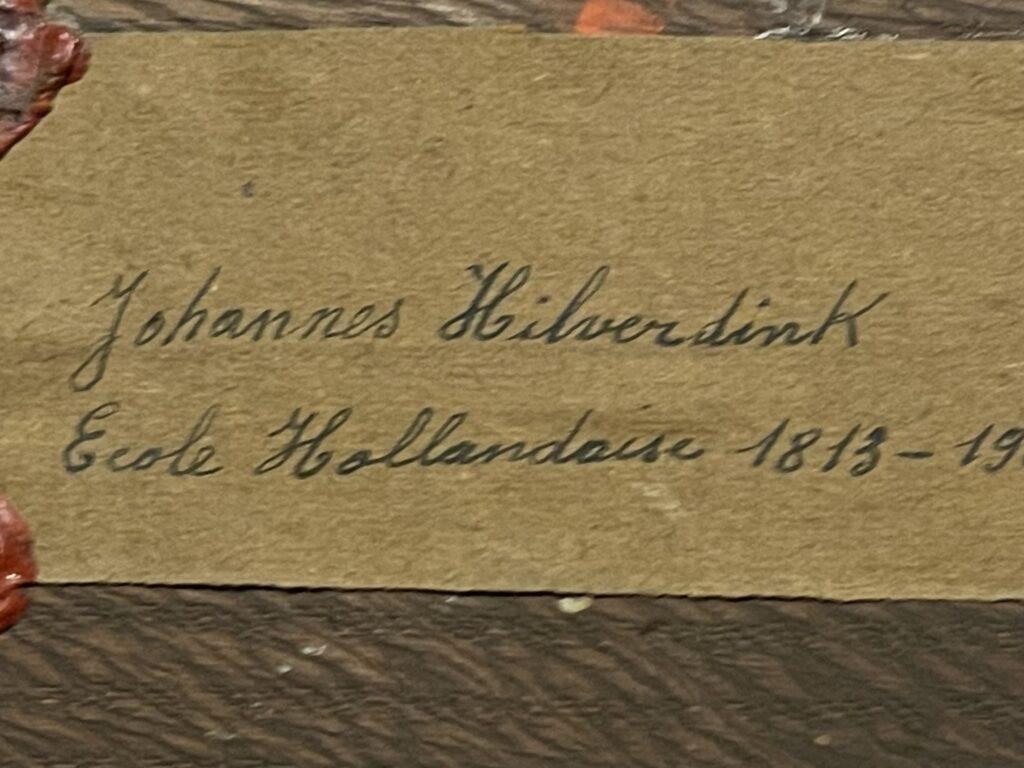 Johannes Hilverdink
Ecole Hollandaise 1813 - 19